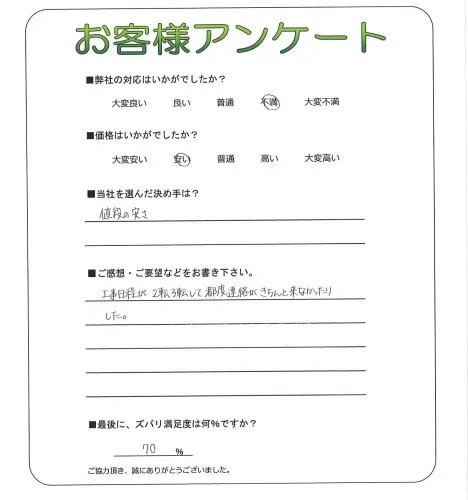 お客様アンケート
■弊社の対応はいかがでしたか？
大変良い 良い 普通 不満 大変不満
■価格はいかがでしたか？
大変安い 安い 普通 高い 大変高い
■当社を選んだ決め手は？
値段の安さ
■ご感想・ご要望などをお書き下さい。
工事日程が2転3転して都度連絡がきちんと来なかったり
した。
■最後に、ズバリ満足度は何%ですか？
70 %
ご協力頂き、誠にありがとうございました。